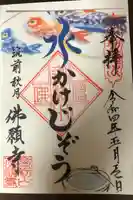 奉拝
令和四年五月一日
水かけじぞう
筑前秋月
佛願寺